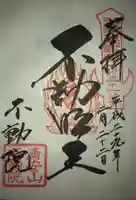 奉拝
平成二十九年
二月二十二日
不動明王
不動院
高野山